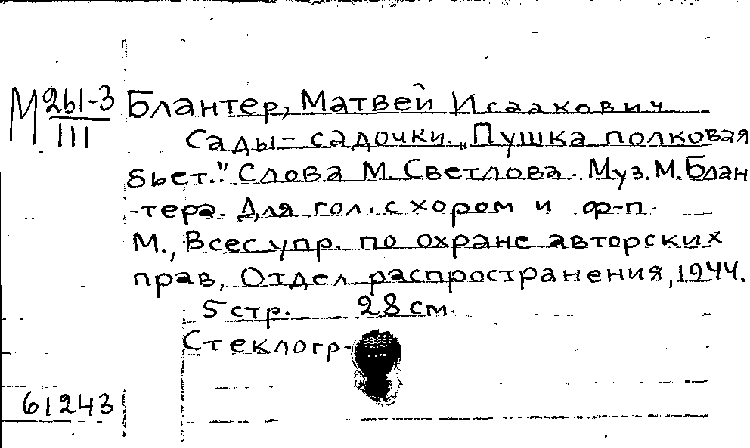 М 261-3
III
Блантер, Матвей Исаакович
Сады-садочки. „Пушка полковая
бьет." Слова М. Светлова. Муз. М. Блан-
тера. Для гол. с хором и ф-п.
М., Всес. упр. по охране авторских
прав, Отдел распространения, 1944.
5 стр. 28 см.
Стеклогр.
61243